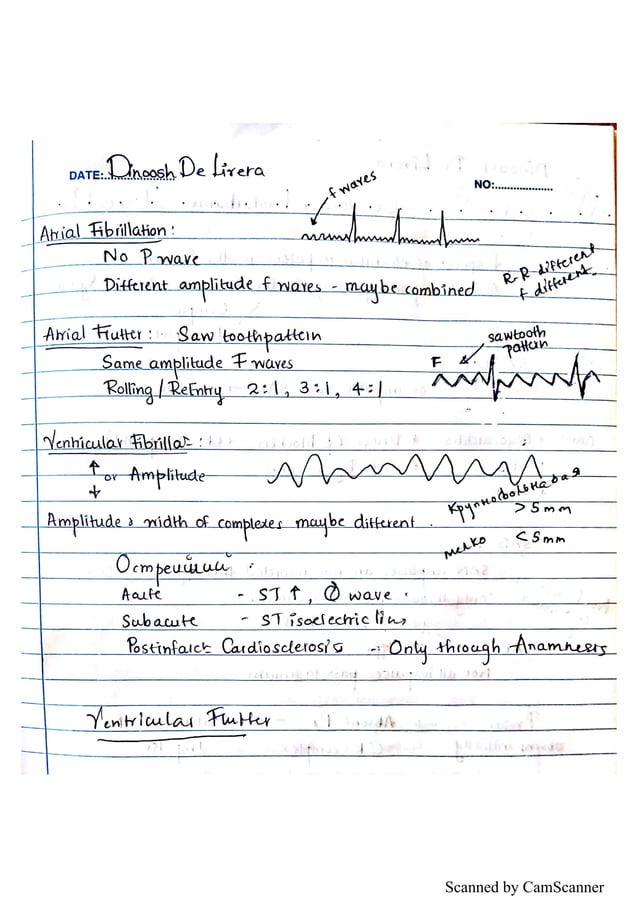 DATE: Dinoosh De Livera
NO:
f waves
Atrial Fibrillation :
No P wave
Different amplitude f waves - maybe combined
R-R different
f different
Atrial Flutter : Saw tooth pattern
sawtooth
pattern
Same amplitude F waves
F
Rolling / ReEntry 2:1, 3:1, 4:1
Ventricular Fibrillat :
↑ or ↓ Amplitude
Крупноволновая
> 5mm
Amplitude & width of complexes maybe different.
мелко < 5mm
Острейший :
Acute - ST ↑, Q wave.
Subacute - ST isoelectric line
Postinfarct Cardiosclerosis - Only through Anamnesis
Ventricular Flutter
Scanned by CamScanner